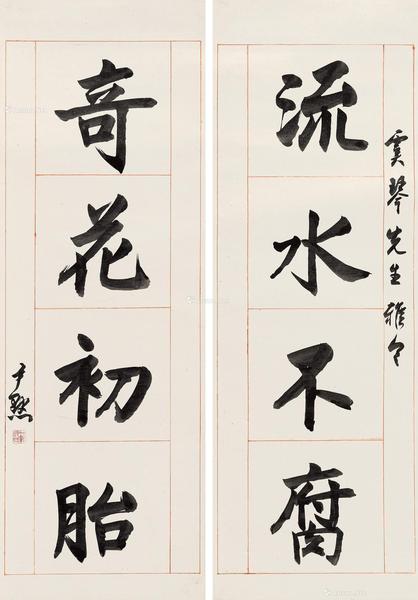 虞琴先生雅令
流水不腐
奇花初胎
尹默